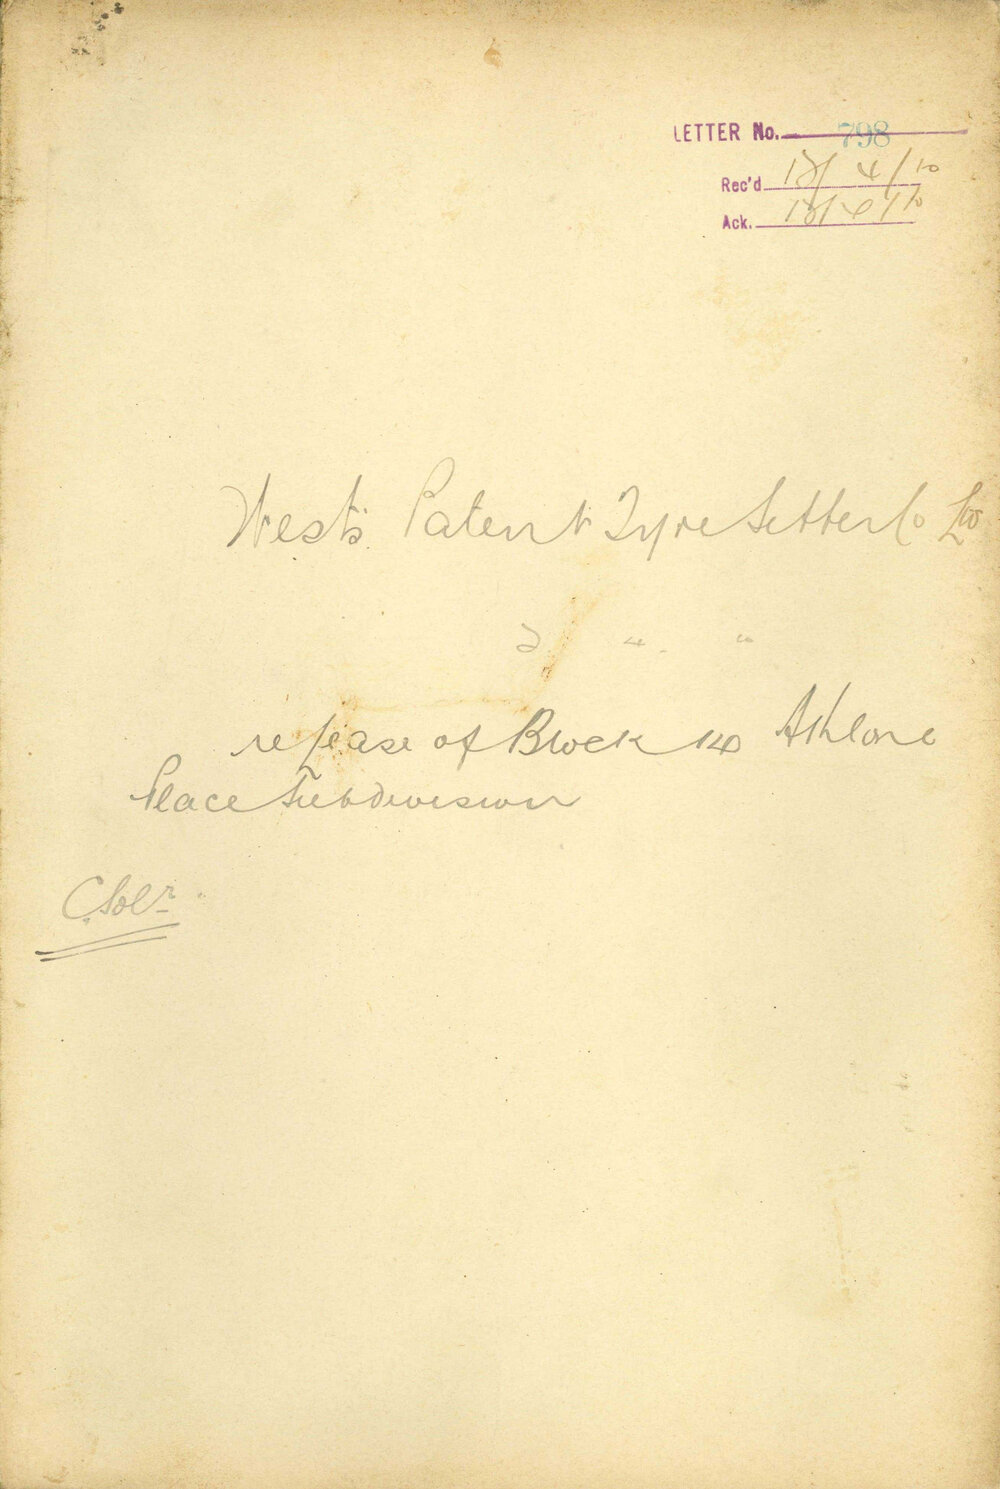 LETTER No. 798
Rec'd 13/4/10
Ack. 13/4/10
West's Patent Tyre Setter Co Ltd
re lease of Block 14 Ashlone
Place Subdivision
C. Solr